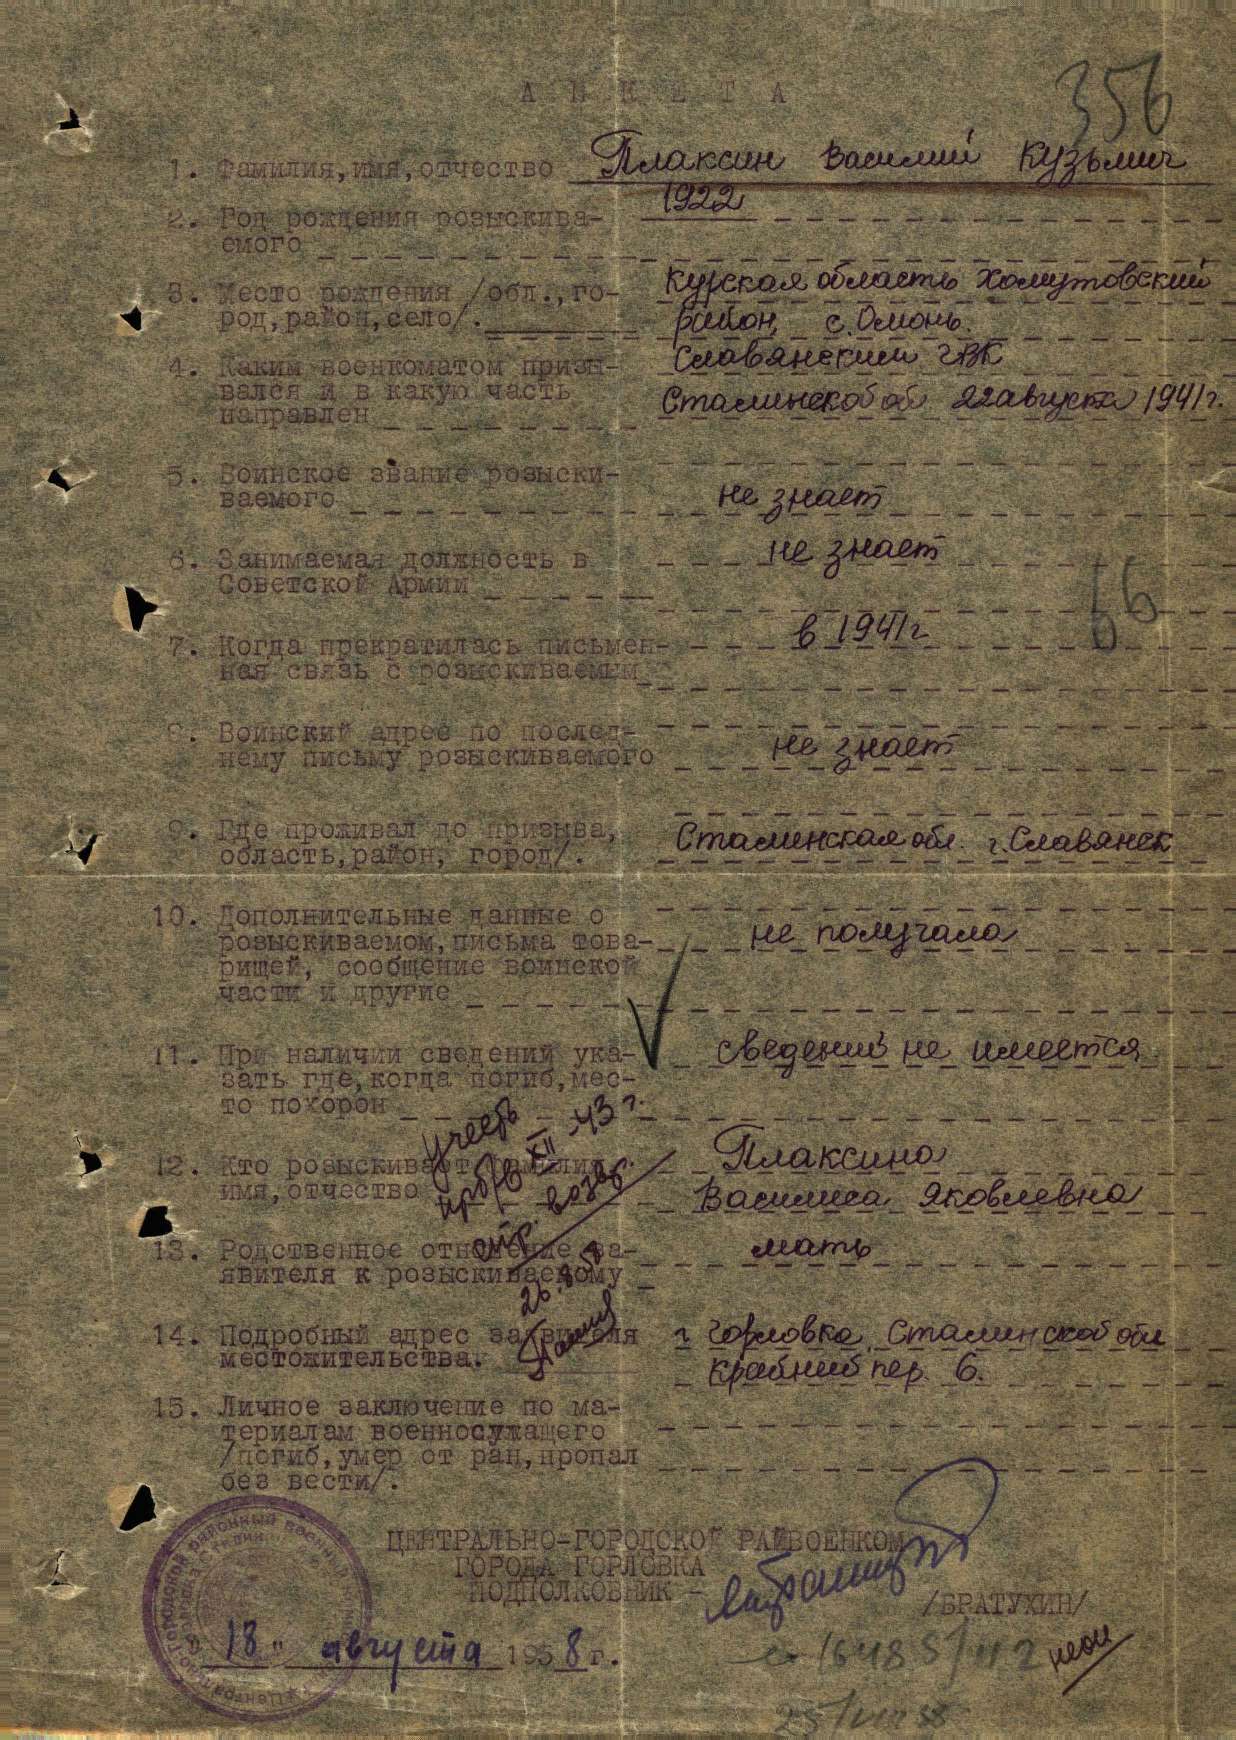 АНКЕТА
356
1. Фамилия, имя, отчество Плаксин Василий Кузьмич
2. Год рождения розыскива- 1922
емого
3. Место рождения /обл., го- Курская область Хомутовский
род, район, село/. район, с. Омонь.
4. Каким военкоматом призы- Славянским ГВК
вался и в какую часть Сталинской об 22 августа 1941 г.
направлен
5. Воинское звание розыски-
ваемого не знает
6. Занимаемая должность в не знает
Советской Армии
66
7. Когда прекратилась письмен- в 1941 г
ная связь с розыскиваемым
8. Воинский адрес по послед-
нему письму розыскиваемого не знает
9. Где проживал до призыва, Сталинская обл. г. Славянск
область, район, город/.
10. Дополнительные данные о
розыскиваемом, письма това- не получала
рищей, сообщение воинской
части и другие
11. При наличии сведений ука- сведений не имеется
зать где, когда погиб, мес-
то похорон
учесть
пр б/в XII-43 г.
возвр.
26.8.58
12. Кто розыскивает фамилия Плаксина
имя, отчество Василиса Яковлевна
13. Родственное отношение за- мать
явителя к розыскиваемому
14. Подробный адрес заявителя г Горловка Сталинской обл
местожительства. Крайний пер. 6.
15. Личное заключение по ма-
териалам военнослужащего
/погиб, умер от ран, пропал
без вести/.
ЦЕНТРАЛЬНО-ГОРОДСКОЙ РАЙВОЕНКОМ
ГОРОДА ГОРЛОВКА
ПОДПОЛКОВНИК -
/БРАТУХИН/
"18" августа 1958 г.
25/VIII 58